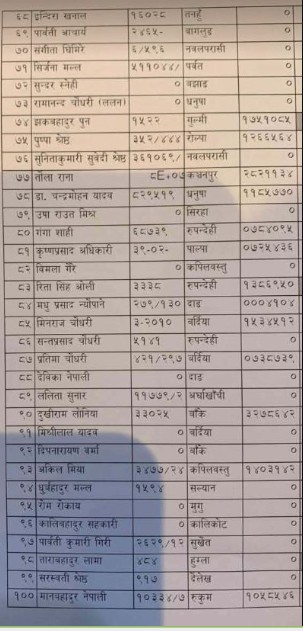 ६८ इन्दिरा खनाल १६०२८ तनहुँ ०
६९ पार्वती आचार्य २४६५- बागलुङ ०
७० संगीता घिमिरे ६/५९६ नवलपरासी ०
७१ सिर्जना मल्ल ५११०४४/ पर्वत ०
७२ सुन्दर स्नेही ० बझाङ ०
७३ रामानन्द चौधरी (ललन) ० धनुषा ०
७४ झकबहादुर पुन १५२२ गुल्मी १७५१०८५
७५ पुष्पा श्रेष्ठ ३५२/४४४ रोल्पा १२६६५६४
७६ सुनिताकुमारी सुवेदी श्रेष्ठ ३६१०६९/ नवलपरासी ०
७७ तौला राना ८E+०७ कंचनपुर २८२११३४
७८ डा. चन्द्रमोहन यादव ८२९५१९ धनुषा ११८५७७०
७९ उषा राउत मिश्र ० सिरहा ०
८० गंगा शाही ६८७३९ रुपन्देही ०७८४०९५
८१ कृष्णप्रसाद अधिकारी ३९-०२- पाल्पा ०७२५४३६
८२ विमला गैरे ० कपिलवस्तु ०
८३ रिता सिंह ओली ३३३८ रुपन्देही १३८६९५०
८४ मधु प्रसाद न्यौपाने २७९/१३० दाङ ०००४१०४
८५ मिनराज चौधरी ३-२०१० बर्दिया १५३४५१२
८६ सन्तप्रसाद चौधरी ५१४१ रुपन्देही ०
८७ प्रतिमा चौधरी ४२१/२९७ बर्दिया ०७३८७३९
८८ देविका नेपाली ० दाङ ०
८९ ललिता सुनार ११७७९/२ अर्घाखाँची ०
९० दुखीराम लोनिया ३३०२५ बाँके ३२७८६४२
९१ मिश्रीलाल यादव ० बर्दिया ०
९२ दिपनारायण वर्मा ० बाँके ०
९३ अकिल मिया ३४७७/२४ कपिलवस्तु १४०३१४२
९४ धुर्वहादुर मल्ल १५९४ सल्यान ०
९५ रोम रोकाय ० मुगु ०
९६ कालिबहादुर सहकारी ० कालिकोट ०
९७ पार्वती कुमारी गिरी २६२९/१२ सुर्खेत ०
९८ ताराबहादुर लामा ४८४ हुम्ला ०
९९ सरस्वती श्रेष्ठ ६९१७ दैलेख ०
१०० मानबहादुर नेपाली १०३३४/७ रुकुम १०५८५४६